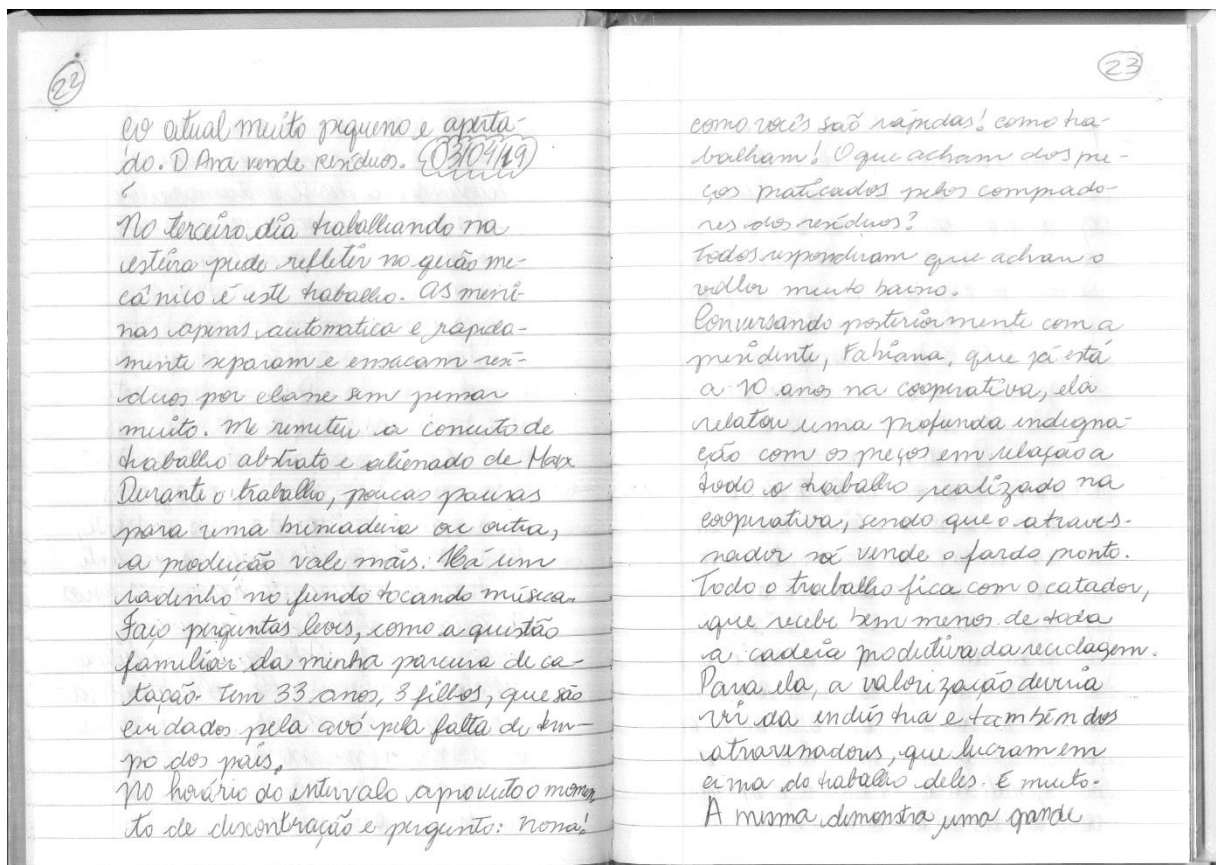 22
ço atual muito pequeno e aperta-
do. O Ana vende resíduos. (03/09/19)
No terceiro dia trabalhando na
esteira pude refletir no quão me-
cânico é este trabalho. As meni-
nas apenas automatica e rapida-
mente separam e ensacam resí-
duos por classe sem pensar
muito. Me remeteu a conceito de
trabalho abstrato e alienado de Marx
Durante o trabalho, poucas pausas
para uma brincadeira ou outra,
a produção vale mais. Há um
radinho no fundo tocando música.
Faço perguntas leves, como a questão
familiar da minha parceira de ca-
tação. Tem 33 anos, 3 filhos, que são
cuidados pela avó pela falta de tem-
po dos pais.
No horário do intervalo aproveito o momen
to de descontração e pergunto: nossa!
23
como vocês são rápidas! como tra-
balham! O que acham dos pre-
ços praticados pelos comprado-
res dos resíduos?
Todos responderam que acham o
valor muito baixo.
Conversando posteriormente com a
presidente, Fabiana, que já está
a 10 anos na cooperativa, ela
relatou uma profunda indigna-
ção com os preços em relação a
todo o trabalho realizado na
cooperativa, sendo que o atraves-
sador só vende o fardo pronto.
Todo o trabalho fica com o catador,
que recebe bem menos de toda
a cadeia produtiva da reciclagem.
Para ela, a valorização deveria
vir da indústria e também dos
atravessadores, que lucram em
cima do trabalho deles. E muito.
A mesma demonstra uma grande